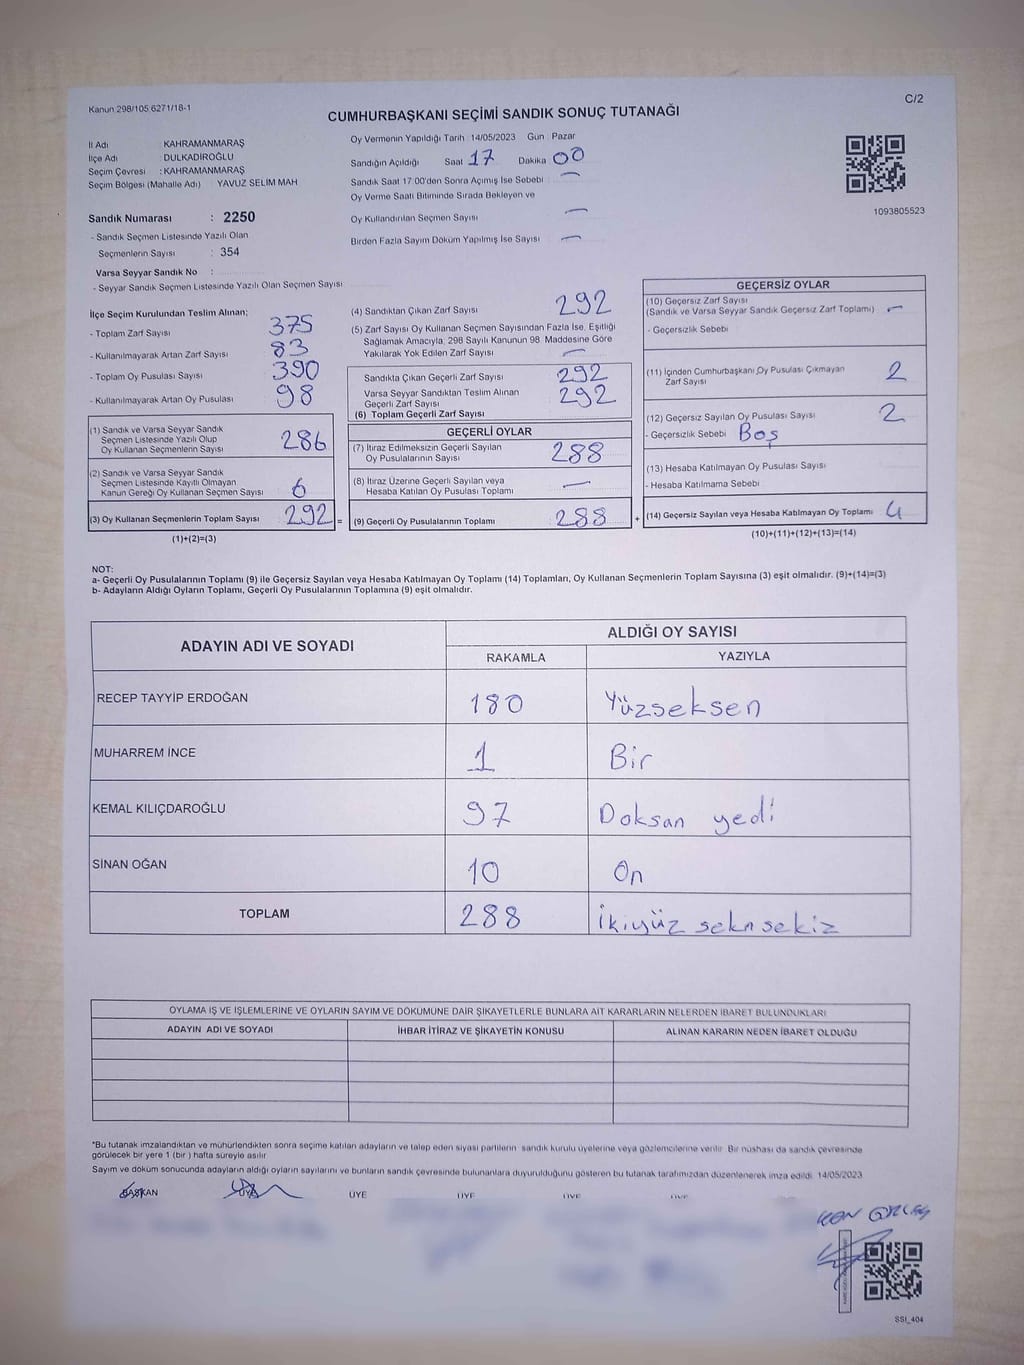 Kanun 298/105 6271/18-1
C/2
CUMHURBAŞKANI SEÇİMİ SANDIK SONUÇ TUTANAĞI
İl Adı : KAHRAMANMARAŞ
İlçe Adı : DULKADİROĞLU
Seçim Çevresi : KAHRAMANMARAŞ
Seçim Bölgesi (Mahalle Adı) YAVUZ SELİM MAH
Sandık Numarası : 2250
- Sandık Seçmen Listesinde Yazılı Olan
Seçmenlerin Sayısı : 354
Varsa Seyyar Sandık No :
- Seyyar Sandık Seçmen Listesinde Yazılı Olan Seçmen Sayısı
Oy Vermenin Yapıldığı Tarih 14/05/2023 Gün Pazar
Sandığın Açıldığı Saat 17 Dakika 00
Sandık Saat 17:00'den Sonra Açımış İse Sebebi : —
Oy Verme Saati Bitiminde Sırada Bekleyen ve
Oy Kullandırılan Seçmen Sayısı —
Birden Fazla Sayım Döküm Yapılmış İse Sayısı —
1093805523
İlçe Seçim Kurulundan Teslim Alınan;
- Toplam Zarf Sayısı 375
- Kullanılmayarak Artan Zarf Sayısı 83
- Toplam Oy Pusulası Sayısı 390
- Kullanılmayarak Artan Oy Pusulası 98
(1) Sandık ve Varsa Seyyar Sandık
Seçmen Listesinde Yazılı Olup
Oy Kullanan Seçmenlerin Sayısı 286
(2) Sandık ve Varsa Seyyar Sandık
Seçmen Listesinde Kayıtlı Olmayan
Kanun Gereği Oy Kullanan Seçmen Sayısı 6
(3) Oy Kullanan Seçmenlerin Toplam Sayısı 292 =
(1)+(2)=(3)
(4) Sandıktan Çıkan Zarf Sayısı 292
(5) Zarf Sayısı Oy Kullanan Seçmen Sayısından Fazla İse, Eşitliği
Sağlamak Amacıyla, 298 Sayılı Kanunun 98. Maddesine Göre
Yakılarak Yok Edilen Zarf Sayısı —
Sandıkta Çıkan Geçerli Zarf Sayısı 292
Varsa Seyyar Sandıktan Teslim Alınan
Geçerli Zarf Sayısı 292
(6) Toplam Geçerli Zarf Sayısı
GEÇERLİ OYLAR
(7) İtiraz Edilmeksizin Geçerli Sayılan
Oy Pusulalarının Sayısı 288
(8) İtiraz Üzerine Geçerli Sayılan veya
Hesaba Katılan Oy Pusulası Toplamı —
(9) Geçerli Oy Pusulalarının Toplamı 288 +
GEÇERSİZ OYLAR
(10) Geçersiz Zarf Sayısı
(Sandık ve Varsa Seyyar Sandık Geçersiz Zarf Toplamı) —
- Geçersizlik Sebebi
(11) İçinden Cumhurbaşkanı Oy Pusulası Çıkmayan
Zarf Sayısı 2
(12) Geçersiz Sayılan Oy Pusulası Sayısı 2
- Geçersizlik Sebebi Boş
(13) Hesaba Katılmayan Oy Pusulası Sayısı
- Hesaba Katılmama Sebebi
(14) Geçersiz Sayılan veya Hesaba Katılmayan Oy Toplamı 4
(10)+(11)+(12)+(13)=(14)
NOT:
a- Geçerli Oy Pusulalarının Toplamı (9) ile Geçersiz Sayılan veya Hesaba Katılmayan Oy Toplamı (14) Toplamları, Oy Kullanan Seçmenlerin Toplam Sayısına (3) eşit olmalıdır. (9)+(14)=(3)
b- Adayların Aldığı Oyların Toplamı, Geçerli Oy Pusulalarının Toplamına (9) eşit olmalıdır.
ADAYIN ADI VE SOYADI
ALDIĞI OY SAYISI
RAKAMLA YAZIYLA
RECEP TAYYİP ERDOĞAN 180 Yüzseksen
MUHARREM İNCE 1 Bir
KEMAL KILIÇDAROĞLU 97 Doksan yedi
SİNAN OĞAN 10 On
TOPLAM 288 İkiyüz seksn sekiz
OYLAMA İŞ VE İŞLEMLERİNE VE OYLARIN SAYIM VE DÖKÜMÜNE DAİR ŞİKAYETLERLE BUNLARA AİT KARARLARIN NELERDEN İBARET BULUNDUKLARI
ADAYIN ADI VE SOYADI İHBAR İTİRAZ VE ŞİKAYETİN KONUSU ALINAN KARARIN NEDEN İBARET OLDUĞU
*Bu tutanak imzalandıktan ve mühürlendikten sonra seçime katılan adayların ve talep eden siyasi partilerin sandık kurulu üyelerine veya gözlemcilerine verilir. Bir nüshası da sandık çevresinde
görülecek bir yere 1 (bir ) hafta süreyle asılır
Sayım ve döküm sonucunda adayların aldığı oyların sayılarını ve bunların sandık çevresinde bulunanlara duyurulduğunu gösteren bu tutanak tarafımızdan düzenlenerek imza edildi. 14/05/2023
BAŞKAN ÜYE ÜYE ÜYE ÜYE ÜYE
SSI_404